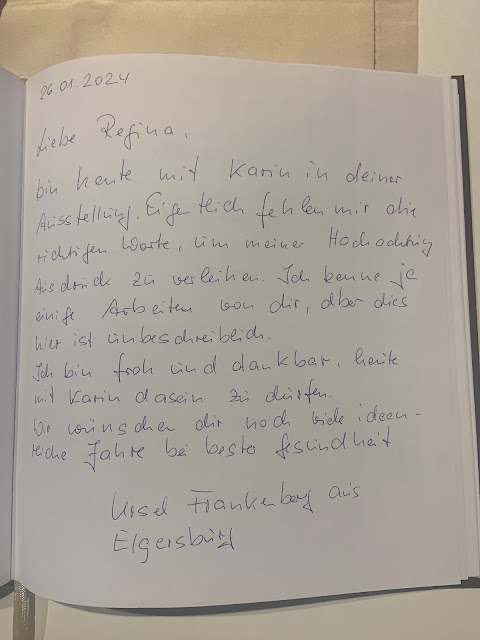 26.01.2024
Liebe Regina,
bin heute mit Karin in deiner
Ausstellung. Eigentlich fehlen mir die
richtigen Worte, um meiner Hochachtung
Ausdruck zu verleihen. Ich kenne ja
einige Arbeiten von dir, aber dies
hier ist unbeschreiblich.
Ich bin froh und dankbar, heute
mit Karin dasein zu dürfen.
Wir wünschen dir noch viele ideen-
reiche Jahre bei bester Gesundheit
Ursel Frankenberg aus
Elgersburg